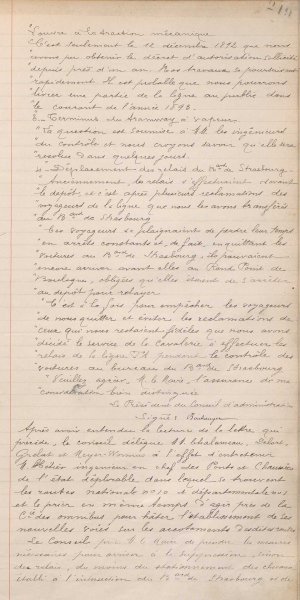 214
"Louvre à traction mécanique
"C'est seulement le 12 décembre 1892 que nous
avons pu obtenir le décret d'autorisation sollicité
depuis près d'un an. Nos travaux se poursuivent
"rapidement. Il est probable que nous pourrons
"livrer une partie de la ligne au public dans
"le courant de l'année 1893.
3° Terminus du tramway à vapeur
"La question est soumise à MM. les ingénieurs
"du contrôle et nous croyons savoir qu'elle sera
"résolue dans quelques jours.
4° Déplacement des relais du Bard de Strasbourg
"Anciennement, les relais s'effectuaient devant
"le dépôt, et c'est après plusieurs réclamations des
"voyageurs de la ligne que nous les avons transférés
"au Bard de Strasbourg
"Ces voyageurs se plaignaient de perdre leur temps
"en arrêts constants et, de fait, en quittant les
"voitures au Bard de Strasbourg, ils pouvaient
"encore arriver avant elles au Rond Point de
"Boulogne, obligées qu'elles étaient de s'arrêter
"au dépôt pour relayer.
"C'est à la fois pour empêcher les voyageurs
"de nous quitter et éviter les réclamations de
"ceux qui nous restaient fidèles que nous avons
"décidé le service de la Cavalerie à effectuer les
"relais de la ligne pendant le contrôle des
"voitures au bureau du Bard de Strasbourg
"Veuillez agréer, M. le Maire, l'assurance de ma
"considération bien distinguée
Le Président du Conseil d'administration
Signé:
Après avoir entendu la lecture de la lettre qui
précède, le conseil délègue MM. Chalameau,
et Meyer à l'effet d'entretenir
M. ingénieur en chef des Ponts et Chaussées
de l'état déplorable dans lequel se trouvent
les routes nationale no 10 et départementale no 1
et le prier en même temps d'agir près de la
Cie des omnibus pour hâter l'établissement de ses
nouvelles voies sur les accotements desdites routes
Le Conseil prie M. le Maire de prendre les mesures
nécessaires pour arriver à la suppression, sinon
des relais, du moins du stationnement des chevaux
établi à l'intersection du Bard de Strasbourg et de